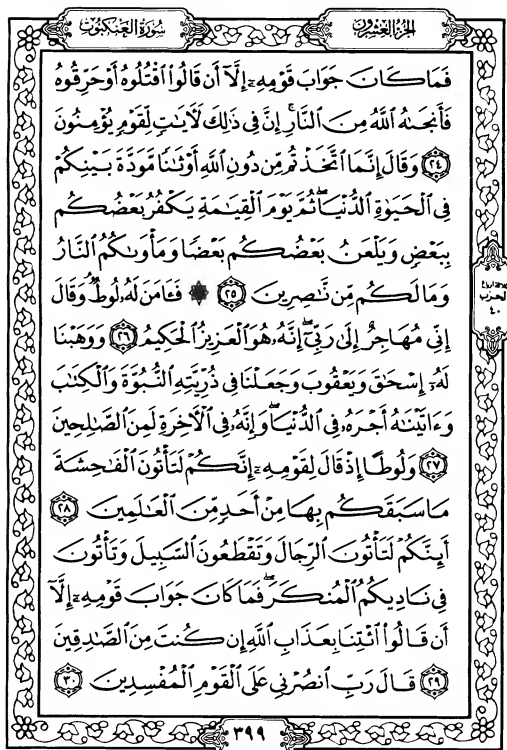 الجزء العشرون
سورة العنكبوت
فَمَا كَانَ جَوَابَ قَوْمِهِۦٓ إِلَّآ أَن قَالُوا۟ ٱقْتُلُوهُ أَوْ حَرِّقُوهُ
فَأَنجَىٰهُ ٱللَّهُ مِنَ ٱلنَّارِۚ إِنَّ فِى ذَٰلِكَ لَـَٔايَـٰتٍ لِّقَوْمٍ يُؤْمِنُونَ
٢٤ وَقَالَ إِنَّمَا ٱتَّخَذْتُم مِّن دُونِ ٱللَّهِ أَوْثَـٰنًا مَّوَدَّةَ بَيْنِكُمْ
فِى ٱلْحَيَوٰةِ ٱلدُّنْيَاۖ ثُمَّ يَوْمَ ٱلْقِيَـٰمَةِ يَكْفُرُ بَعْضُكُم
بِبَعْضٍ وَيَلْعَنُ بَعْضُكُم بَعْضًا وَمَأْوَىٰكُمُ ٱلنَّارُ
وَمَا لَكُم مِّن نَّـٰصِرِينَ ٢٥ ۞ فَـَٔامَنَ لَهُۥ لُوطٌۘ وَقَالَ
إِنِّى مُهَاجِرٌ إِلَىٰ رَبِّىٓۖ إِنَّهُۥ هُوَ ٱلْعَزِيزُ ٱلْحَكِيمُ ٢٦ وَوَهَبْنَا
لَهُۥٓ إِسْحَـٰقَ وَيَعْقُوبَ وَجَعَلْنَا فِى ذُرِّيَّتِهِ ٱلنُّبُوَّةَ وَٱلْكِتَـٰبَ
وَءَاتَيْنَـٰهُ أَجْرَهُۥ فِى ٱلدُّنْيَاۖ وَإِنَّهُۥ فِى ٱلْـَٔاخِرَةِ لَمِنَ ٱلصَّـٰلِحِينَ
٢٧ وَلُوطًا إِذْ قَالَ لِقَوْمِهِۦٓ إِنَّكُمْ لَتَأْتُونَ ٱلْفَـٰحِشَةَ
مَا سَبَقَكُم بِهَا مِنْ أَحَدٍ مِّنَ ٱلْعَـٰلَمِينَ ٢٨
أَئِنَّكُمْ لَتَأْتُونَ ٱلرِّجَالَ وَتَقْطَعُونَ ٱلسَّبِيلَ وَتَأْتُونَ
فِى نَادِيكُمُ ٱلْمُنكَرَۖ فَمَا كَانَ جَوَابَ قَوْمِهِۦٓ إِلَّآ
أَن قَالُوا۟ ٱئْتِنَا بِعَذَابِ ٱللَّهِ إِن كُنتَ مِنَ ٱلصَّـٰدِقِينَ
٢٩ قَالَ رَبِّ ٱنصُرْنِى عَلَى ٱلْقَوْمِ ٱلْمُفْسِدِينَ ٣٠
الحزب
٤٠
٣٩٩